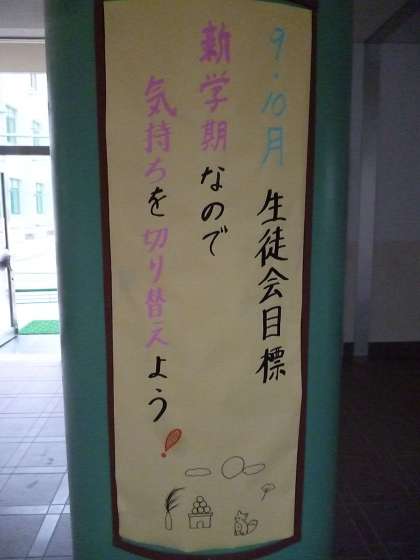 9・10月 生徒会目標
新学期なので
気持ちを切り替えよう!